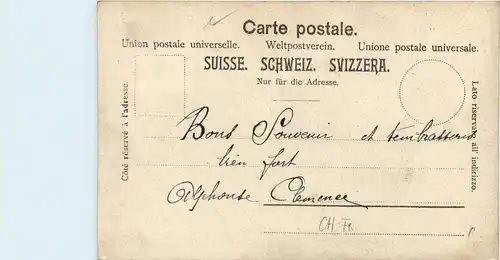 Carte postale.
Union postale universelle. Weltpostverein. Unione postale universale.
SUISSE. SCHWEIZ. SVIZZERA.
Nur für die Adresse.
Côté réservé à l'adresse.
Lato riservato all' indirizzo.
Bons Souvenir et t'embrassons
bien fort
Alphonse Clemence
CH-Fr.